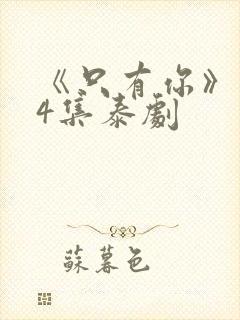 《只有你》
4集泰劇
蘇暮色